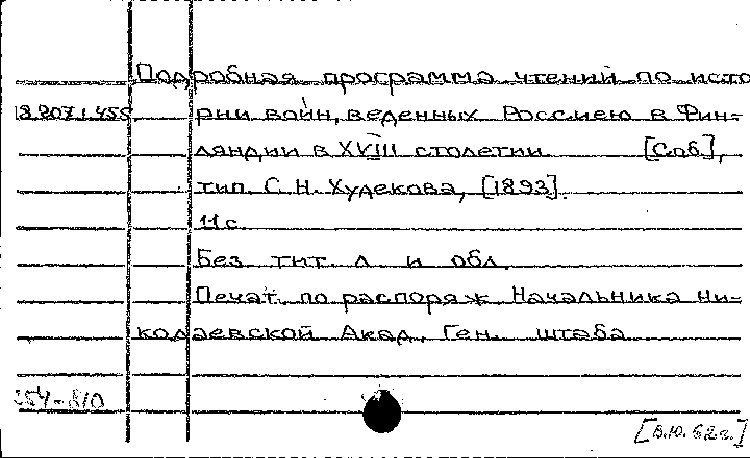 Подробная программа чтений по исто
18.207.1.459 рии войн, веденных Россиею в Фин-
ляндии в XVIII столетии [Спб],
тип. С. Н. Худекова, [1893].
11 с.
Без тит. л. и обл.
Печат. по распоряж. Начальника Ни-
колаевской Акад. Ген. штаба
54-810